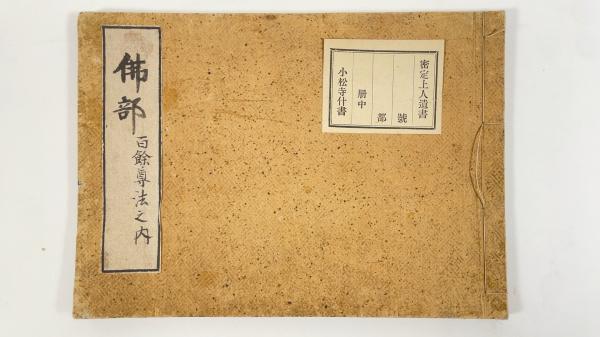 密定上人遺書
號
部
冊中
小松寺什書
佛部
百餘尊法之内